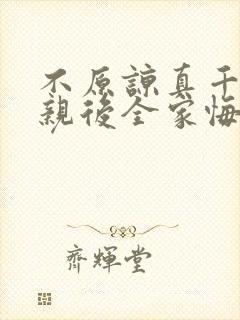 不原諒真千
親後全家悔
齊輝堂